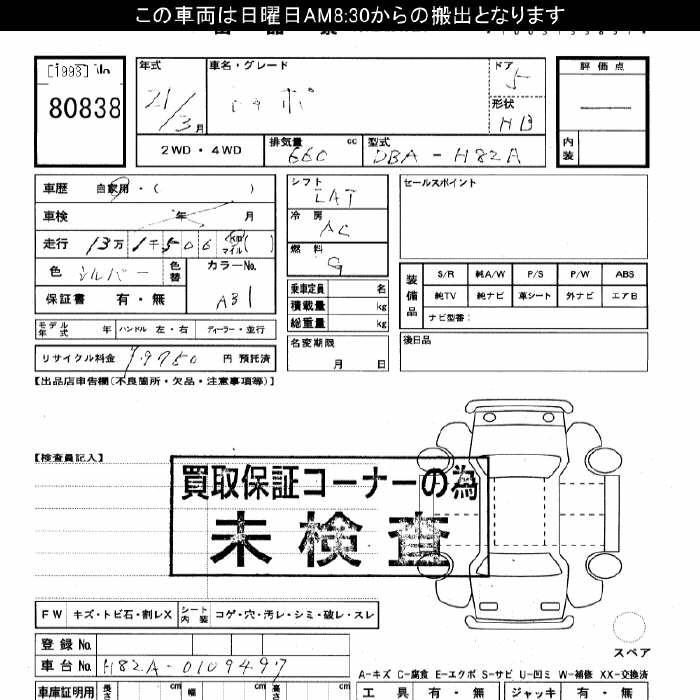 この車両は日曜日AM8:30からの搬出となります
[1993]
80838
年式
21/3月
車名・グレード
ドア
5
形状
HB
評価点
内装
2WD・4WD
排気量
660 cc
型式
DBA-H82A
車歴 自家用・( )
車検 年 月
走行 13万 1千 506 km マイル( )
色 シルバー
色替
カラーNo.
A31
保証書 有・無
シフト
LAT
冷房
AC
燃料
G
乗車定員 名
積載量 kg
総重量 kg
セールスポイント
装備品
S/R 純A/W P/S P/W ABS
純TV 純ナビ 革シート 外ナビ エアB
ナビ型番:
モデル年式 年 ハンドル 左・右 ディーラー・並行
名変期限
月 日
後日品
リサイクル料金 円 預託済
【出品店申告欄(不良箇所・欠品・注意事項等)】
【検査員記入】
買取保証コーナーの為
未検査
FW キズ・トビ石・割レX
シート内装 コゲ・穴・汚レ・シミ・破レ・スレ
スペア
登録No.
車台No. H82A-0109497
A-キズ C-腐食 E-エクボ S-サビ U-凹ミ W-補修 XX-交換済
車庫証明用 長さ cm 幅 cm 高さ cm
工具 有・無 ジャッキ 有・無